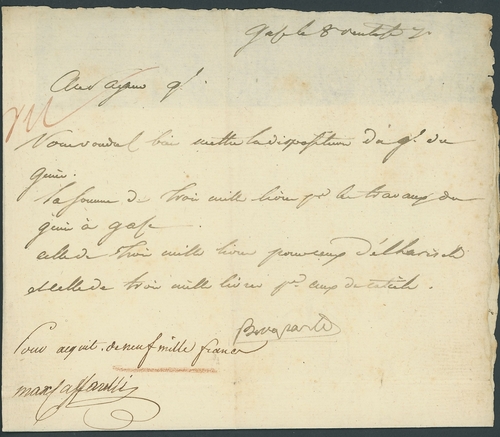 Gase le 8 ventose 7.
Au payeur gl.
Vous voudrez bien mettre à la disposition du gl. du
génie
la somme de trois mille livres pr. les travaux du
génie à gase
celle de trois mille livres pour ceux d'élharisch
et celle de trois mille livres pr. ceux de catieh.
Bonaparte
Pour acquit de neuf mille francs
max Caffarelli